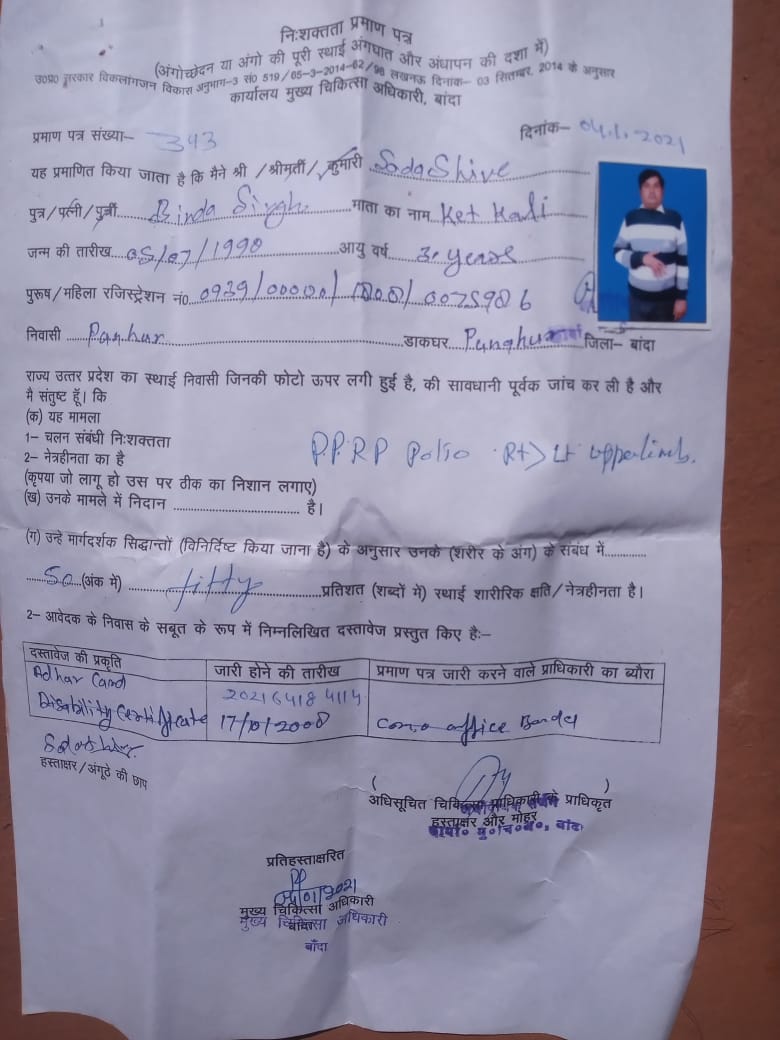 निःशक्तता प्रमाण पत्र
(अंगोच्छेदन या अंगो की पूरी स्थाई अंगघात और अंधापन की दशा में)
उ०प्र० सरकार विकलांगजन विकास अनुभाग-3 सं० 519/65-3-2014-62/98 लखनऊ दिनाक- 03 सितम्बर, 2014 के अनुसार
कार्यालय मुख्य चिकित्सा अधिकारी, बांदा
प्रमाण पत्र संख्या- 343
दिनांक- 04.1.2021
यह प्रमाणित किया जाता है कि मैने श्री /श्रीमती/ कुमारी SadaShive
पुत्र/पत्नी/पुत्री Binda Singh माता का नाम Ket Kali
जन्म की तारीख 05/07/1990 आयु वर्ष 30 years
पुरूष/महिला रजिस्ट्रेशन नं० 0939/00000/ /0075986
निवासी Panhur डाकघर जिला- बांदा
राज्य उत्तर प्रदेश का स्थाई निवासी जिनकी फोटो ऊपर लगी हुई है, की सावधानी पूर्वक जांच कर ली है और
मै संतुष्ट हूँ। कि
(क) यह मामला
1- चलन संबंधी निःशक्तता
2- नेत्रहीनता का है
P.P.R.P Polio Rt> Lt upperlimb.
(कृपया जो लागू हो उस पर ठीक का निशान लगाए)
(ख) उनके मामले में निदान .............................. है।
(ग) उन्हे मार्गदर्शक सिद्धान्तों (विनिर्दिष्ट किया जाना है) के अनुसार उनके (शरीर के अंग) के संबंध में............
50 (अंक में) fifty प्रतिशत (शब्दों में) स्थाई शारीरिक क्षति/नेत्रहीनता है।
2- आवेदक के निवास के सबूत के रूप में निम्नलिखित दस्तावेज प्रस्तुत किए है:-
दस्तावेज की प्रकृति जारी होने की तारीख प्रमाण पत्र जारी करने वाले प्राधिकारी का ब्यौरा
Adhar Card 202164184114
Disability Certificate 17/10/2008 C.m.o office Banda
हस्ताक्षर/अंगूठे की छाप
( )
अधिसूचित चिकित्सा प्राधिकारी के प्राधिकृत
हस्ताक्षर और मोहर
बांदा
प्रतिहस्ताक्षरित
04/01/2021
मुख्य चिकित्सा अधिकारी
बांदा
मुख्य चिकित्सा अधिकारी
बाँदा